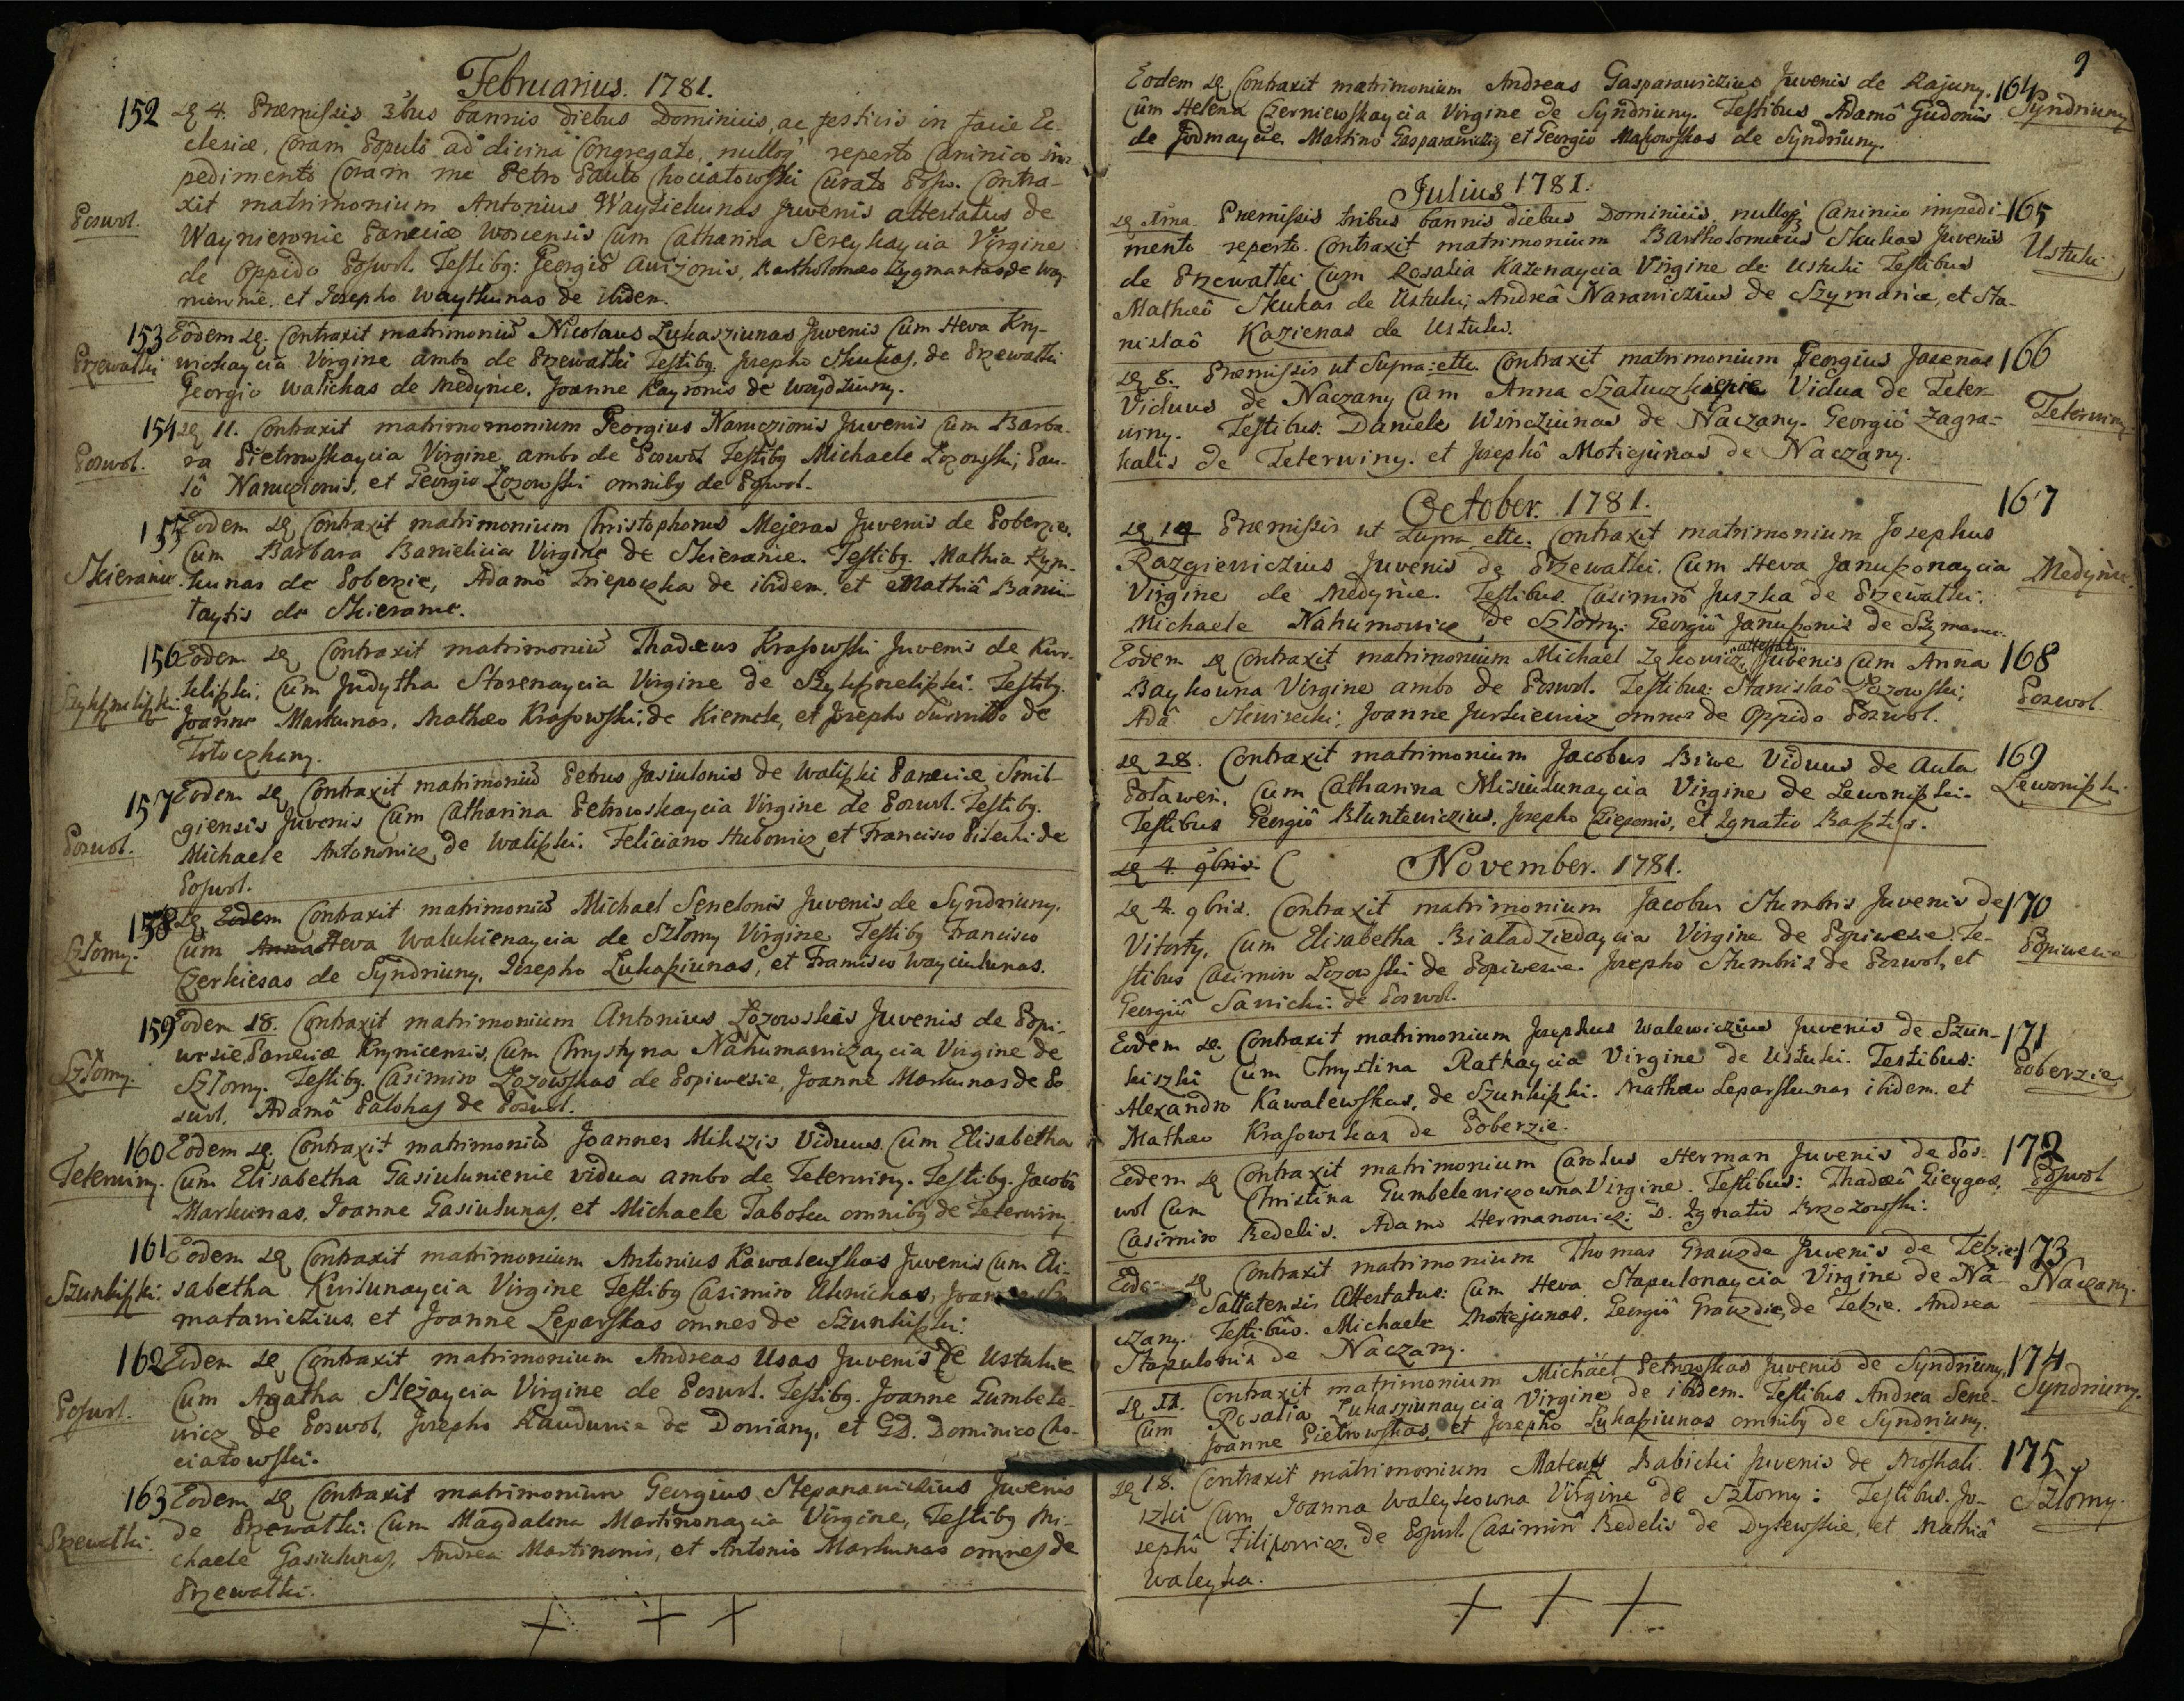 Februarius. 1781.
152 De 4. Præmissis 3bus bannis diebus Dominicis, ac festivis in facie Ec-
clesiæ, Coram Populo ad divina Congregato, nulloq reperto Canonico im-
pedimento Coram me Petro Paulo Chociatowski Curato Posw. Contra-
Poswol. xit matrimonium Antonius Waytiekunas Juvenis attestatus de
Wayniewnie Paneciæ Cum Catharina Sereykaycia Virgine
de Oppido Poswol. Testibq: Georgiô Awizonis, Bartholomeo Zygmantas de Way-
niewnie, et Josepho Waytkunas de ibidem.
153 Eodem De. Contraxit matrimoniu Nicolaus Lukasziunas Juvenis Cum Heva Kry-
Przewalki wickaycia Virgine ambo de Przewalki Testibq. Josepho Skukas, de Przewalki
Georgio Walichas de Medynie, Joanne Rayronis de Woydziuny.
154 De 11. Contraxit matrimomonium Georgius Naruczionis Juvenis Cum Barba-
Poswol. ra Pietrowskaycia Virgine ambo de Poswol Testibq Michaele Lozowski, Pau-
lô Naruczionis, et Georgio Lozowski omnibq de Poswol.
155 Eodem De Contraxit matrimonium Christophorus Mejeras Juvenis de Poberzie,
Cum Barbara Banielicia Virgine de Skieranie. Testibq. Mathia Rym-
Skieranie. kunas de Poberzie, Adamô Triepoczka de ibidem, et Mathiâ Banii-
taytis de Skieranie.
156 Eodem De Contraxit matrimoniu Thadeus Krasowski Juvenis de Kur-
kliszki, Cum Judytha Storenaycia Virgine de Szykszneliszki. Testibq.
Joanne Markunas, Matheo Krasowski, de Kiemele, et Josepho Turnillo de
Totoczkany.
157 Eodem De Contraxit matrimoniu Petrus Jasiulonis de Waliszki Paneciæ Smil-
giensis Juvenis Cum Catharina Petrowskaycia Virgine de Poswol. Testibq.
Poswol. Michaele Antonowicz de Waliszki. Feliciano Hubowicz et Francisco de
Poswol.
158 De Eodem Contraxit matrimoniu Michael Senelonis Juvenis de Syndriuny.
Sztomy. Cum Anna Heva Walukienaycia de Sztomy Virgine Testibq Francisco
Czerkiesas de Syndriuny, Josepho Lukasziunas, et Francisco Wayciulunas.
159 Eodem 18. Contraxit matrimonium Antonius Lozowskis Juvenis de Popi-
wesie Paneciæ Krynicensis, Cum Chrystyna Nahumawiczaycia Virgine de
Sztomy. Sztomy. Testibq. Casimiro Lozowskas de Popiwesie, Joanne Markunas de Po
swol. Adamô Palohas de Poswol.
160 Eodem De. Contraxit matrimoniu Joannes Mikszis Viduus Cum Elisabetha
Teterwiny. Cum Elisabetha Gasiulunienie vidua ambo de Teterwiny. Testibq. Jacobô
Markunas, Joanne Gasiulunas, et Michaele Taboka omnibq de Teterwiny.
161 Eodem De Contraxit matrimonium Antonius Kawalewskas Juvenis Cum Eli-
Szunkiszki: sabetha Kwilunaycia Virgine Testibq Casimiro Ulinickas, Joanne
matawiczius, et Joanne Leparskas omnes de Szunkiszki.
162 Eodem De Contraxit matrimonium Andreas Usas Juvenis de Ustukie
Poswol. Cum Agatha Slezaycia Virgine de Poswol. Testibq. Joanne Gumbele-
wicz de Poswol, Josepho Raudunie de Doniany, et GD. Dominico Cho-
ciatowski.
163 Eodem De Contraxit matrimonium Georgius Stepanawiczius Juvenis
Przewalki. de Przewalki: Cum Magdalena Martinonaycia Virgine, Testibq Mi-
chaele Gasiulunas, Andrea Martinonis, et Antonio Markunas omnes de
Przewalki.
9
Eodem De Contraxit matrimonium Andreas Gasparawiczius Juvenis de Rajuny. 164
Cum Helena Czerniewskaycia Virgine de Syndriuny. Testibus Adamô Gudonis Syndriuny
de Jodmaycie, Martino Gasparawicz et Georgio Makowskas de Syndriuny.
Julius 1781.
De 1ma Præmissis tribus bannis diebus Dominicis, nulloq Canonico impedi- 165
mento reperto. Contraxit matrimonium Bartholomæus Skukas Juvenis
de Przewalki Cum Rosalia Kazenaycia Virgine de Ustuki Testibus Ustuki
Mathæô Skukas de Ustuki, Andreâ Narawiczius de Szymanie, et Sta-
nislaô Kazienas de Ustuki.
De 8. Præmissis ut Supra: ettc. Contraxit matrimonium Georgius Jasenas 166
Viduus de Naczany Cum Anna Vidua de Teter-
winy. Testibus: Daniele Winckiunas de Naczany. Georgiô Zagra- Teterwiny.
kalis de Teterwiny. et Josephô Motiejunas de Naczany.
October. 1781.
De 14 Præmissis ut Supra ettc. Contraxit matrimonium Josephus 167
Razgiewiczius Juvenis de Przewalki. Cum Heva Januszonaycia Medynie.
Virgine de Medynie. Testibus. Casimirô Juszka de Przewalki.
Michaele Nahumowicz de Sztomy. Georgiô Januszonis de Szymanie.
Eodem De Contraxit matrimonium Michael attestatq Juvenis Cum Anna 168
Baykowna Virgine ambo de Poswol. Testibus: Stanislaô Lozowski, Poswol.
Adâ Skinsecki, Joanne Jurkiewicz omnes de Oppido Poswol.
De 28. Contraxit matrimonium Jacobus Biwe Viduus de Aula 169
Potawen, Cum Catharina Misiulunaycia Virgine de Lewoniszki. Lewoniszki.
Testibus Georgiô Bluntewiczius, Josepho Cieponis, et Ignatio Basztys.
De 4. 9bris. ( November. 1781.
De 4. 9bris. Contraxit matrimonium Jacobus Stumbris Juvenis de 170
Vitorty, Cum Elisabetha Bialadziedaycia Virgine de Popiwesie. Te- Popiwesie
stibus Casimiro Lozowski de Popiwesie. Josepho Stumbris de Poswol, et
Georgiô Sawicki: de Poswol.
Eodem De. Contraxit matrimonium Josephus Walewiczius Juvenis de Szun- 171
kiszki Cum Chrystina Rathaycia Virgine de Ustuki. Testibus: Poberzie
Alexandro Kawalewskas, de Szunkiszki. Mathæo Leparskunas ibidem. et
Mathæo Krasowskas de Poberzie.
Eodem De Contraxit matrimonium Carolus Herman Juvenis de Pos- 172
wol Cum Christina Gumbelewiczowna Virgine. Testibus: Thadæô Gieygas, Poswol
Casimiro Bedelis. Adamo Hermanowicz: D. Ignatio Brzozowski.
De Contraxit matrimonium Thomas Grauzde Juvenis de Telzie. 173
Sallatensis Attestatus: Cum Heva Stapulonaycia Virgine de Na- Naczany.
czany. Testibus. Michaele Motiejunas, Georgiô Grauzdie, de Telzie. Andrea
Stapulonis de Naczany.
De 11. Contraxit matrimonium Michael Petrowskas Juvenis de Syndriuny 174
Cum Rosalia Lukasziunaycia Virgine de ibidem. Testibus Andrea Sene- Syndriuny.
Joanne Pietrowskas, et Josepho Lukasziunas omnibq de Syndriuny.
De 18. Contraxit matrimonium Mateusz Babicki Juvenis de Moskali- 175
szki Cum Joanna Waleykowna Virgine de Sztomy: Testibus. Jo- Sztomy.
sephô Filipowicz, de Poswol. Casimirô Bedelis de Dylewskie, et Mathiâ
Waleyka.